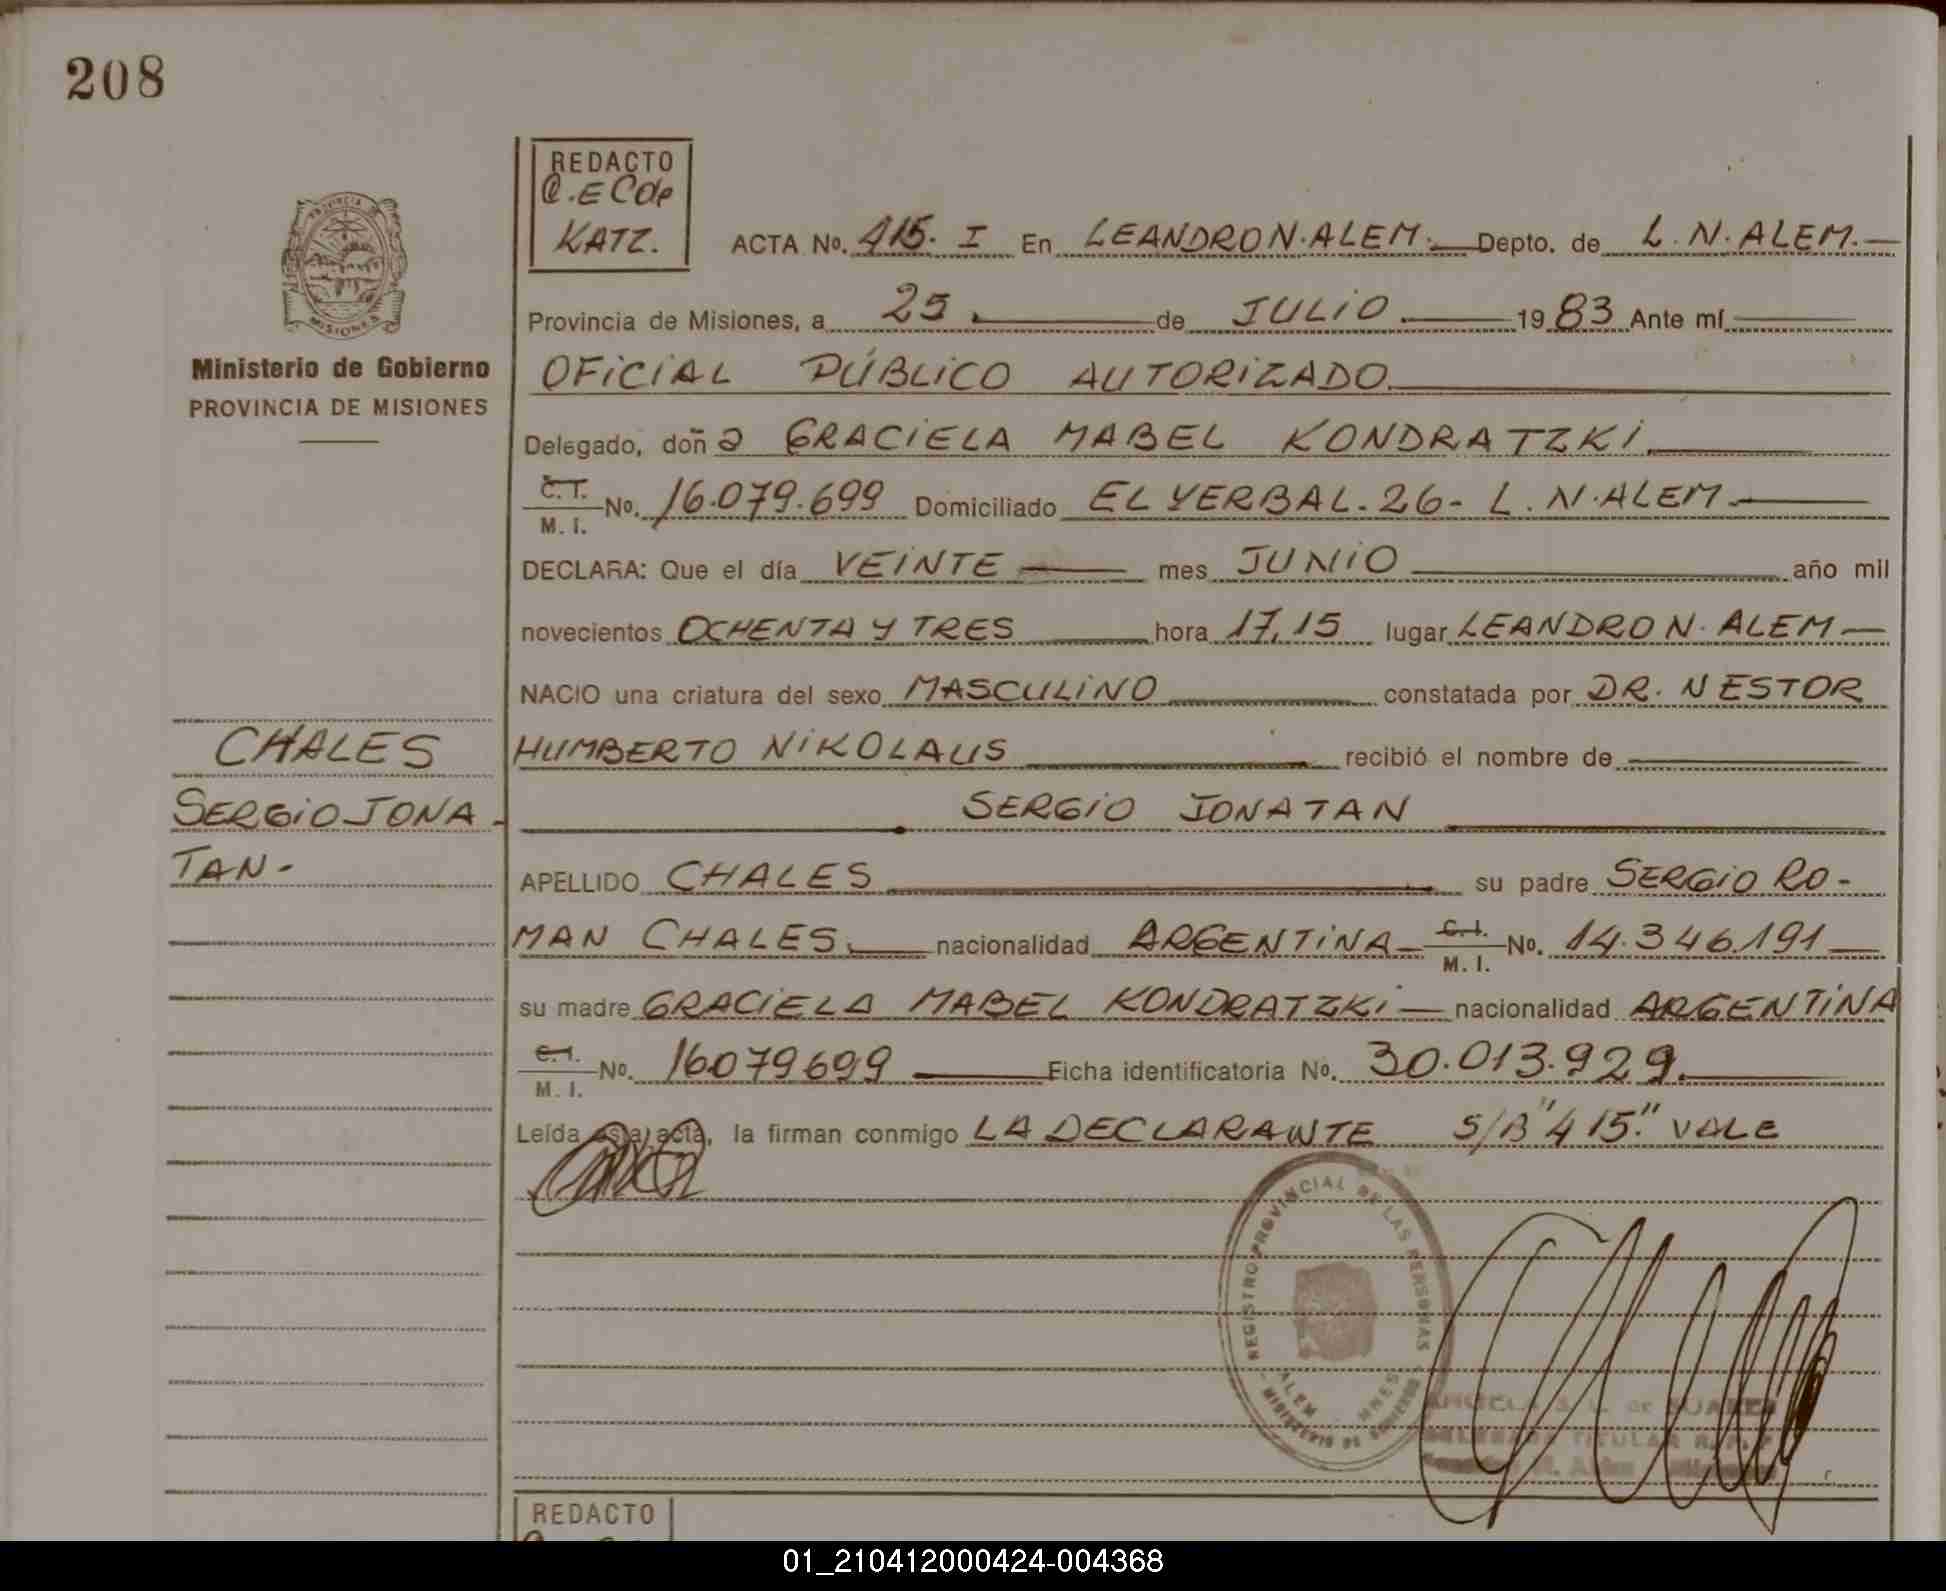 208
REDACTO
C.E C de
KATZ.
ACTA No. 415. I En LEANDRO N. ALEM. Depto. de L. N. ALEM.
Provincia de Misiones, a 25. de JULIO 1983 Ante mí
OFICIAL PÚBLICO AUTORIZADO
Delegado, doña GRACIELA MABEL KONDRATZKI
C.I. M. I. No. 16.079.699 Domiciliado EL YERBAL. 26- L. N. ALEM
DECLARA: Que el día VEINTE mes JUNIO año mil
novecientos OCHENTA Y TRES hora 17,15 lugar LEANDRO N. ALEM
NACIO una criatura del sexo MASCULINO constatada por DR. NESTOR
HUMBERTO NIKOLAUS recibió el nombre de
SERGIO JONATAN
APELLIDO CHALES su padre SERGIO RO-
MAN CHALES nacionalidad ARGENTINA C.I. M. I. No. 14.346.191
su madre GRACIELA MABEL KONDRATZKI nacionalidad ARGENTINA
C.I. M. I. No. 16079699 Ficha identificatoria No. 30.013.929.
Leída esta acta, la firman conmigo LA DECLARANTE S/B "415." VALE
PROVINCIA DE
MISIONES
Ministerio de Gobierno
PROVINCIA DE MISIONES
CHALES
SERGIO JONA-
TAN-
REGISTRO PROVINCIAL DE LAS PERSONAS
ALEM MNES
MINISTERIO DE GOBIERNO
DE SUAREZ
DELEGADA TITULAR R. P. P.
REDACTO
01_210412000424-004368